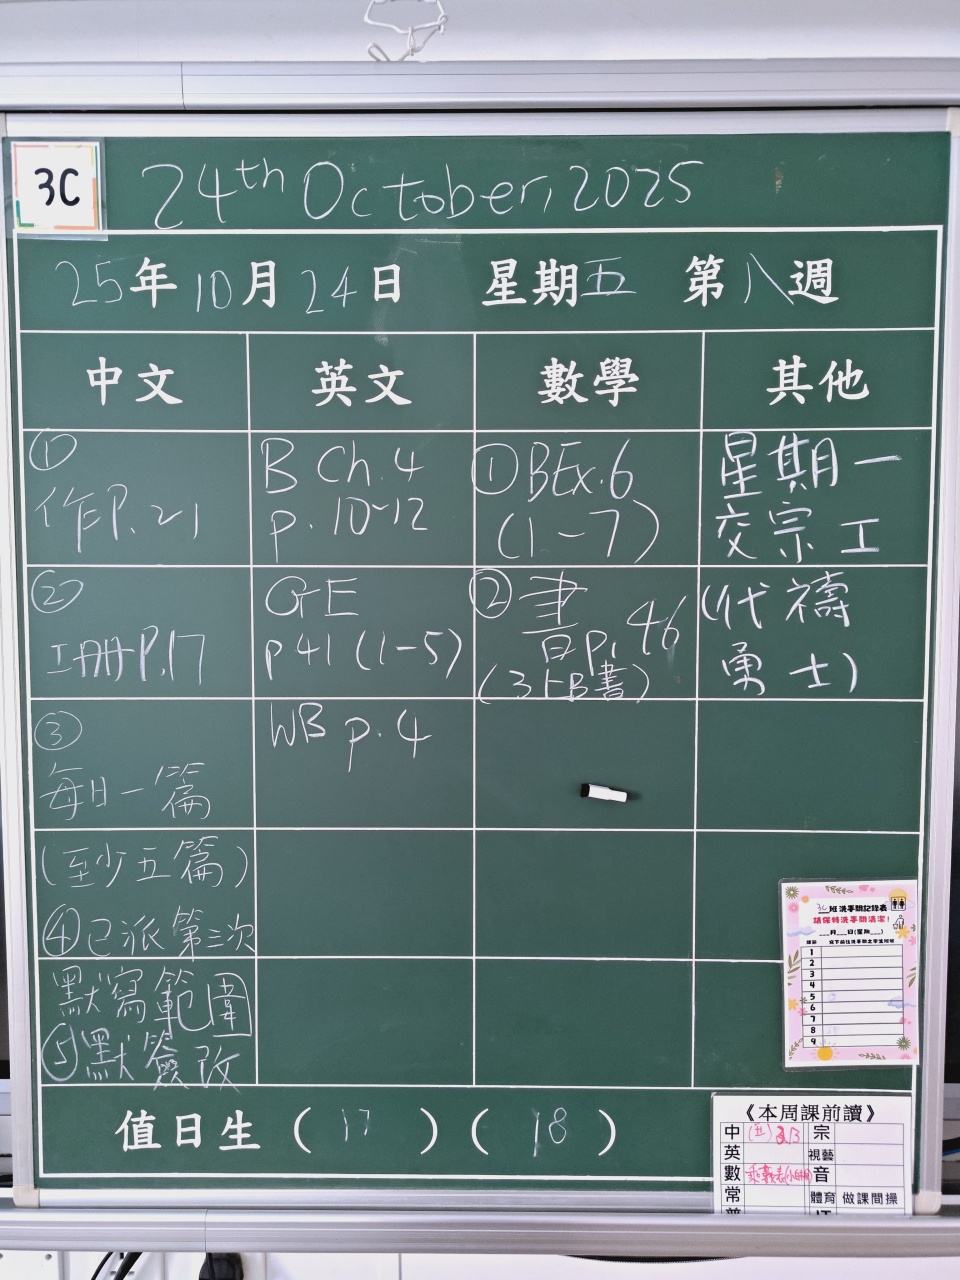 3C
24th October, 2025
25年10月24日 星期五 第八週
中文 英文 數學 其他
①
作P.21
②
工冊P.17
③
每日一篇
(至少五篇)
④已派第三次
默寫範圍
⑤默簽改
B Ch.4
p.10-12
GE
p41 (1-5)
WB p.4
①BEx.6
(1-7)
②書p.46
(3上B書)
星期一
交宗工
(代禱
勇士)
值日生 (17) (18)
3C班洗手間記錄表
請保持洗手間清潔！
___月___日(星期___)
1
2
3
4
5
6
7
8
9
《本周課前讀》
中 (五) 宗
英 視藝
數 音
常 體育 做課間操
普 IT